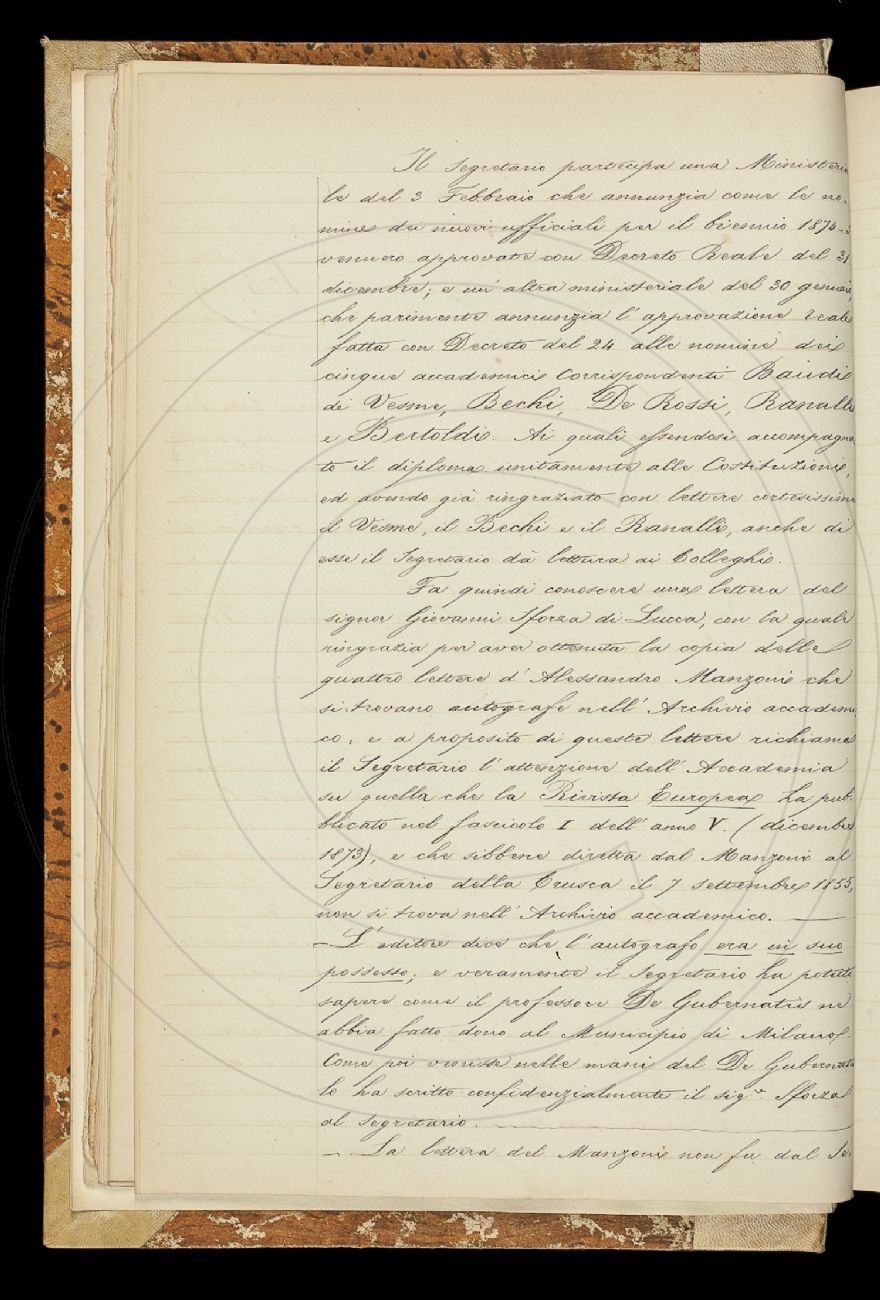 Il Segretario partecipa una Ministeria
le del 3 Febbraio che annunzia come le no-
mine dei nuovi ufficiali per il biennio 1874-5
vennero approvate con Decreto Reale del 31
dicembre; e un' altra ministeriale del 30 gennaio,
che parimente annunzia l' approvazione reale
fatta con Decreto del 24 alle nomine dei
cinque accademici Corrispondenti Baudi
di Vesme, Bechi, De Rossi, Ranalli
e Bertoldi. Ai quali essendosi accompagna-
to il diploma unitamente alle Costituzioni,
ed avendo già ringraziato con lettere cortesissime
il Vesme, il Bechi e il Ranalli, anche di
esse il Segretario dà lettura ai Colleghi.
Fa quindi conoscere una lettera del
signor Giovanni Sforza di Lucca, con la quale
ringrazia per aver ottenuta la copia delle
quattro lettere d' Alessandro Manzoni che
si trovano autografe nell' Archivio accademi
co; e a proposito di queste lettere richiama
il Segretario l' attenzione dell' Accademia
su quella che la Rivista Europea ha pub-
blicato nel fascicolo I dell' anno V. (dicembre
1873), e che sibbene diretta dal Manzoni al
Segretario della Crusca il 7 settembre 1855,
non si trova nell' Archivio accademico. —
– L' editore dice che l' autografo era in suo
possesso; e veramente il Segretario ha potuto
sapere come il professore De Gubernatis ne
abbia fatto dono al Municipio di Milano.
Come poi venisse nelle mani del De Gubernatis
lo ha scritto confidenzialmente il sigr Sforza
al segretario. —
– La lettera del Manzoni non fu dal Se-